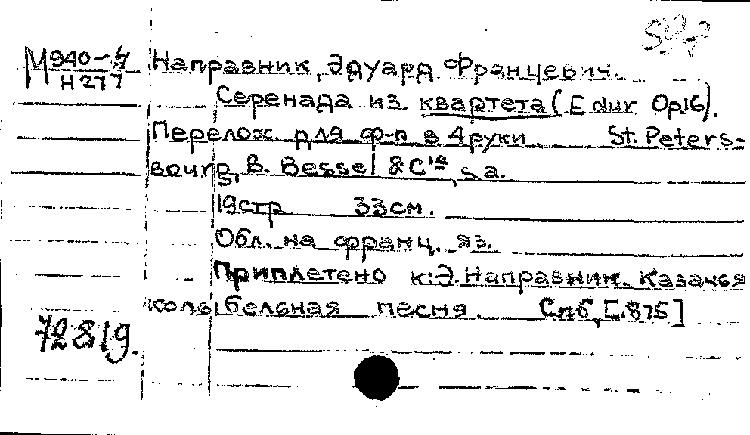 М940-4
Н277
Направник, Эдуард Францевич.
Серенада из квартета (E dur Op16).
Перелож. для ф-п в 4 руки. St. Peters-
bourg, B. Bessel & Cie, s.a.
19стр 33см.
Обл. на франц. яз.
Приплетено к: Э. Направник. Казачья
колыбельная песня. Спб, [1875]
72819.